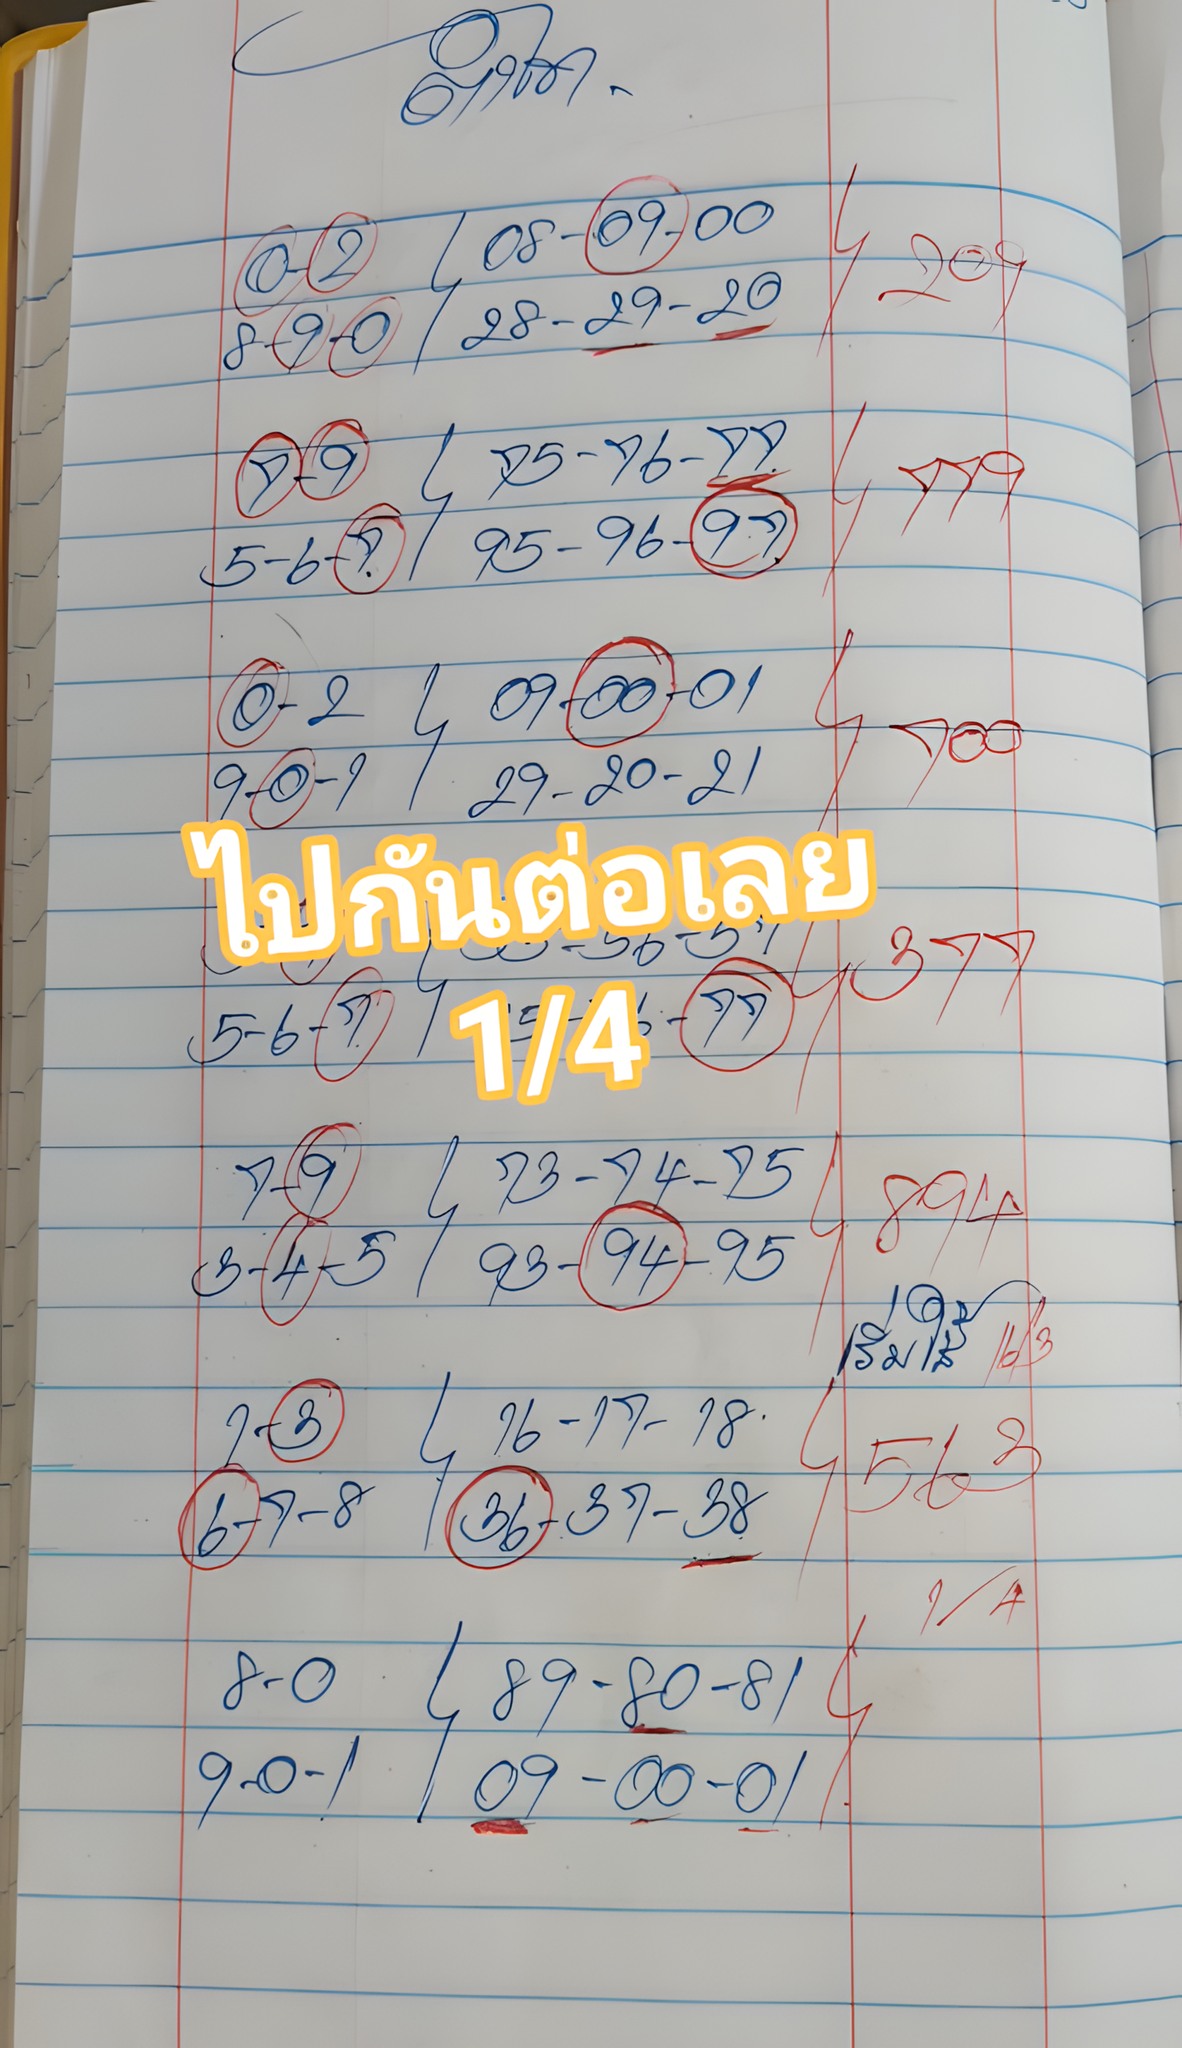 0-2 08-09-00 209
8-9-0 28-29-20
7-9 75-76-77 779
5-6-7 95-96-97
0-2 09-00-01 700
9-0-1 29-20-21
ไปกันต่อเลย
377
5-6-7 77
1/4
7-9 73-74-75 894
3-4-5 93-94-95
เริ่มใช้ 16/3
1-3 16-17-18 563
6-7-8 36-37-38
1/4
8-0 89-80-81
9-0-1 09-00-01